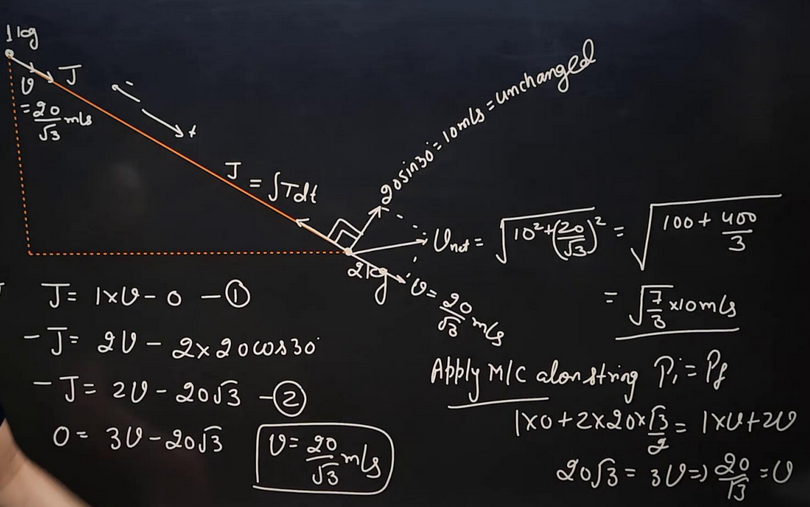 1kg
J
v
= 20/√3 m/s
-
+
J = ∫Tdt
20sin30° = 10m/s = unchanged
Vnet = √(10² + (20/√3)²) = √(100 + 400/3)
= √(7/3) x 10 m/s
2kg
v = 20/√3 m/s
J = 1xv - 0 - ①
- J = 2v - 2x20cos30°
- J = 2v - 20√3 - ②
0 = 3v - 20√3
v = 20/√3 m/s
Apply M/C alon string Pi = Pf
1x0 + 2x20x√3/2 = 1xv + 2v
20√3 = 3v => 20/√3 = v